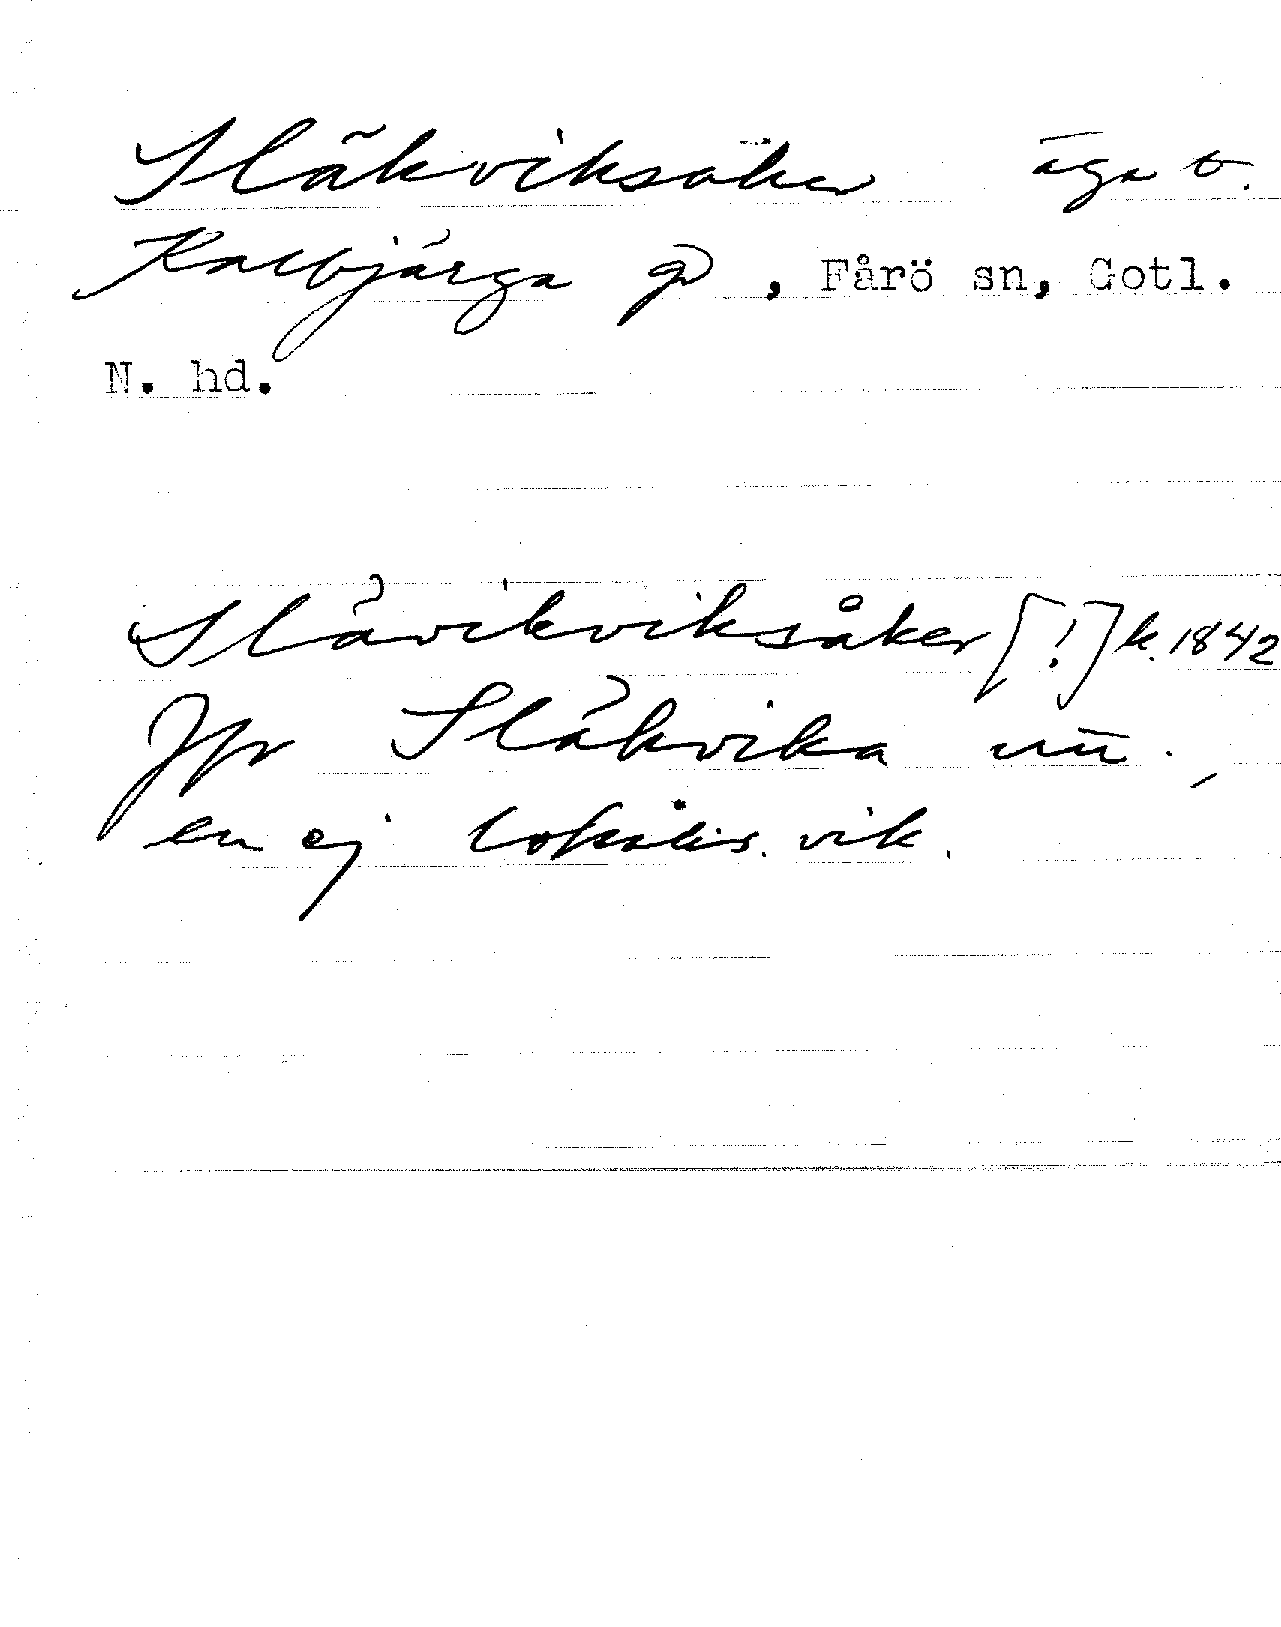 Släkviksåker äga t.
Kalbjärga gd, Fårö sn, Gotl.
N. hd.
Slävikviksåker [!] k. 1842
Jfr Släkvika nu.,
en ej lokalis. vik.